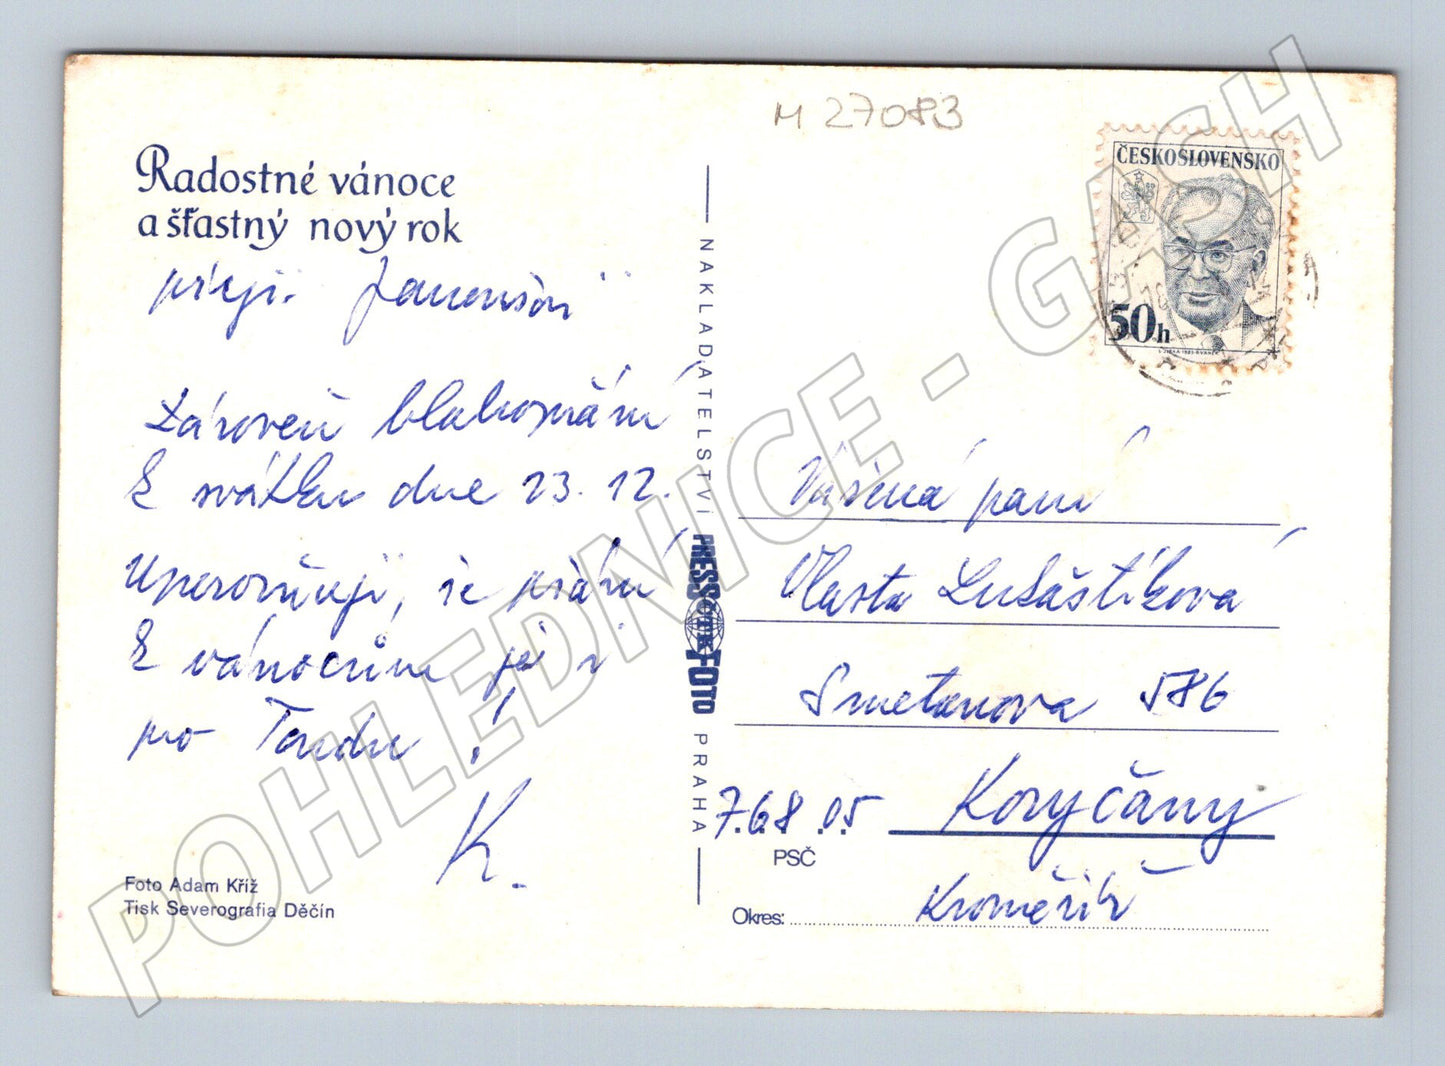 M 27083
Radostné vánoce
a šťastný nový rok
přejí. Janourovi
Zároveň blahopřání
k svátku dne 23. 12.
Upozorňuji, že přání
k vánocům je i
pro Tondu!
K.
Foto Adam Kříž
Tisk Severografia Děčín
NAKLADATELSTVÍ PRESSFOTO PRAHA
ČTK
ČESKOSLOVENSKO
50h
Vážená paní
Vlasta Lukáštíková
Smetanova 586
768 05 Koryčany
PSČ
Okres: Kroměříž
POHLEDNICE - GASH